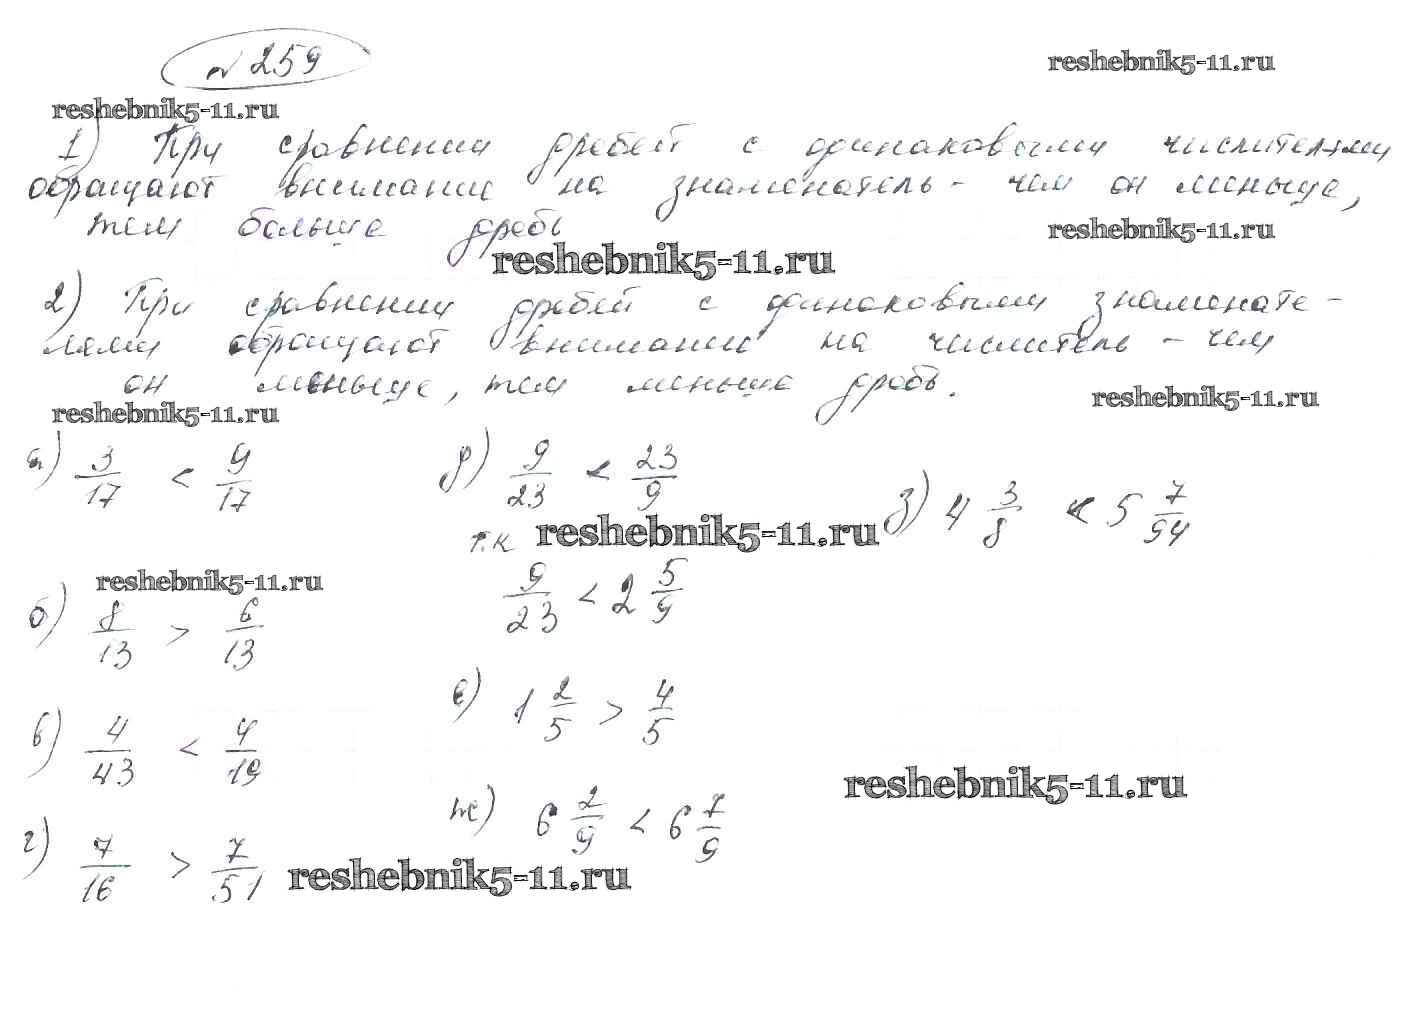 № 259
reshebnik5-11.ru
reshebnik5-11.ru
1) При сравнении дробей с одинаковыми числителями
обращают внимание на знаменатель - чем он меньше,
тем больше дробь
reshebnik5-11.ru
reshebnik5-11.ru
2) При сравнении дробей с одинаковыми знаменате-
лями обращают внимание на числитель - чем
он меньше, тем меньше дробь.
reshebnik5-11.ru
reshebnik5-11.ru
а) 3/17 < 9/17
д) 9/23 < 23/9
з) 4 3/8 < 5 7/94
т.к
reshebnik5-11.ru
9/23 < 2 5/9
reshebnik5-11.ru
б) 8/13 > 6/13
е) 1 2/5 > 4/5
в) 4/43 < 4/19
reshebnik5-11.ru
ж) 6 2/9 < 6 7/9
г) 7/16 > 7/51
reshebnik5-11.ru